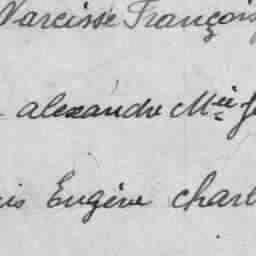 Narcisse François
alexandre Mie
Eugène Charl